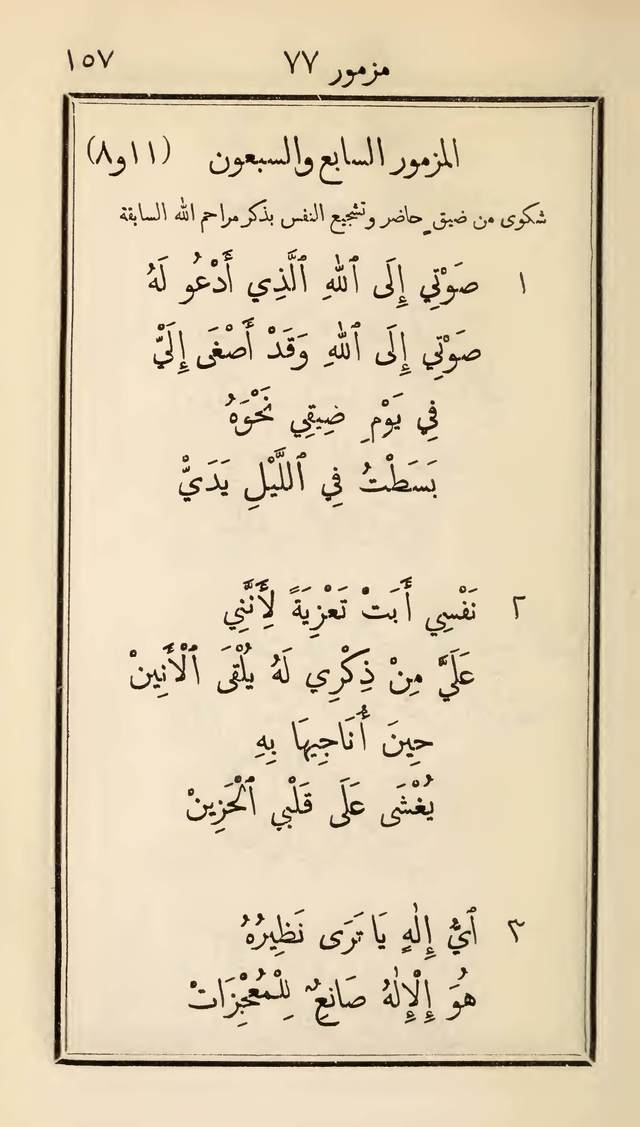 مزمور ٧٧ ١٥٧
المزمور السابع والسبعون (١١و٨)
شكوى من ضيق حاضر وتشجيع النفس بذكر مراحم الله السابقة
١ صَوْتِي إِلَى ٱللهِ ٱلَّذِي أَدْعُو لَهُ
صَوْتِي إِلَى ٱللهِ وَقَدْ أَصْغَى إِلَيَّْ
فِي يَوْمِ ضِيقِي نَحْوَهُ
بَسَطْتُ فِي ٱللَّيْلِ يَدَيَّْ
٢ نَفْسِي أَبَتْ تَعْزِيَةً لِأَنَّنِي
عَلَيَّ مِنْ ذِكْرِي لَهُ يُلْقَى ٱلْأَنِينْ
حِينَ أُنَاجِيهَا بِهِ
يُغْشَى عَلَى قَلْبِي ٱلْحَزِينْ
٣ أَيُّ إِلٰهٍ يَا تَرَى نَظِيرُهُ
هُوَ ٱلْإِلٰهُ صَانِعٌ لِلْمُعْجِزَاتْ